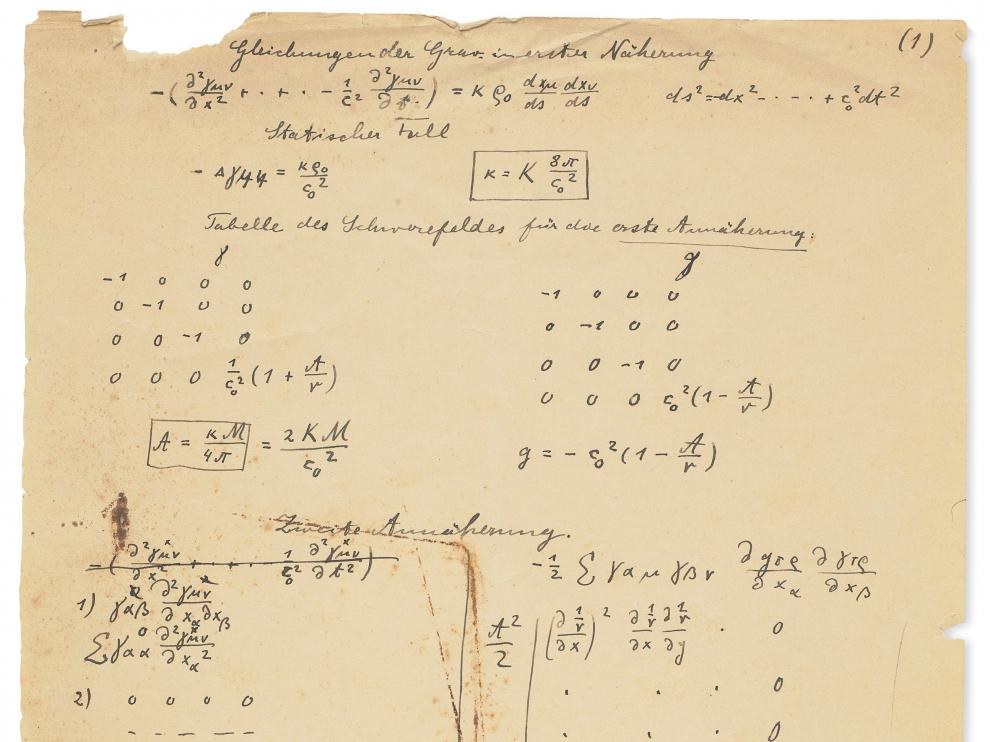 (1)
Gleichungen der Grav. in erster Näherung
-(∂²γμν/∂x² + · + · - 1/c² ∂²γμν/∂t·) = κ ρ₀ dxμ/ds dxν/ds   ds² = -dx² - · - · + c₀² dt²
Statischer Fall
- Δγ44 = κρ₀/c₀²   κ = K 8π/c₀²
Tabelle des Schwerefeldes für die erste Annäherung:
γ   g
-1 0 0 0   -1 0 0 0
0 -1 0 0   0 -1 0 0
0 0 -1 0   0 0 -1 0
0 0 0 1/c₀² (1 + A/r)   0 0 0 c₀² (1 - A/r)
A = κM/4π = 2KM/c₀²   g = - c₀² (1 - A/r)
Zweite Annäherung.
-(∂²γˣμν/∂x² + · · · 1/c₀² ∂²γˣμν/∂t²)   -1/2 Σ γαμ γβν ∂gτρ/∂xα ∂γτρ/∂xβ
1) γαβ ∂²γμν/∂xα∂xβ
Σ γαα ∂²γˣμν/∂xα²   A²/2 | (∂ 1/r/∂x)² ∂ 1/r/∂x ∂ 1/r/∂y · 0
2) 0 0 0 0   · · · 0
- - - -   · · · 0